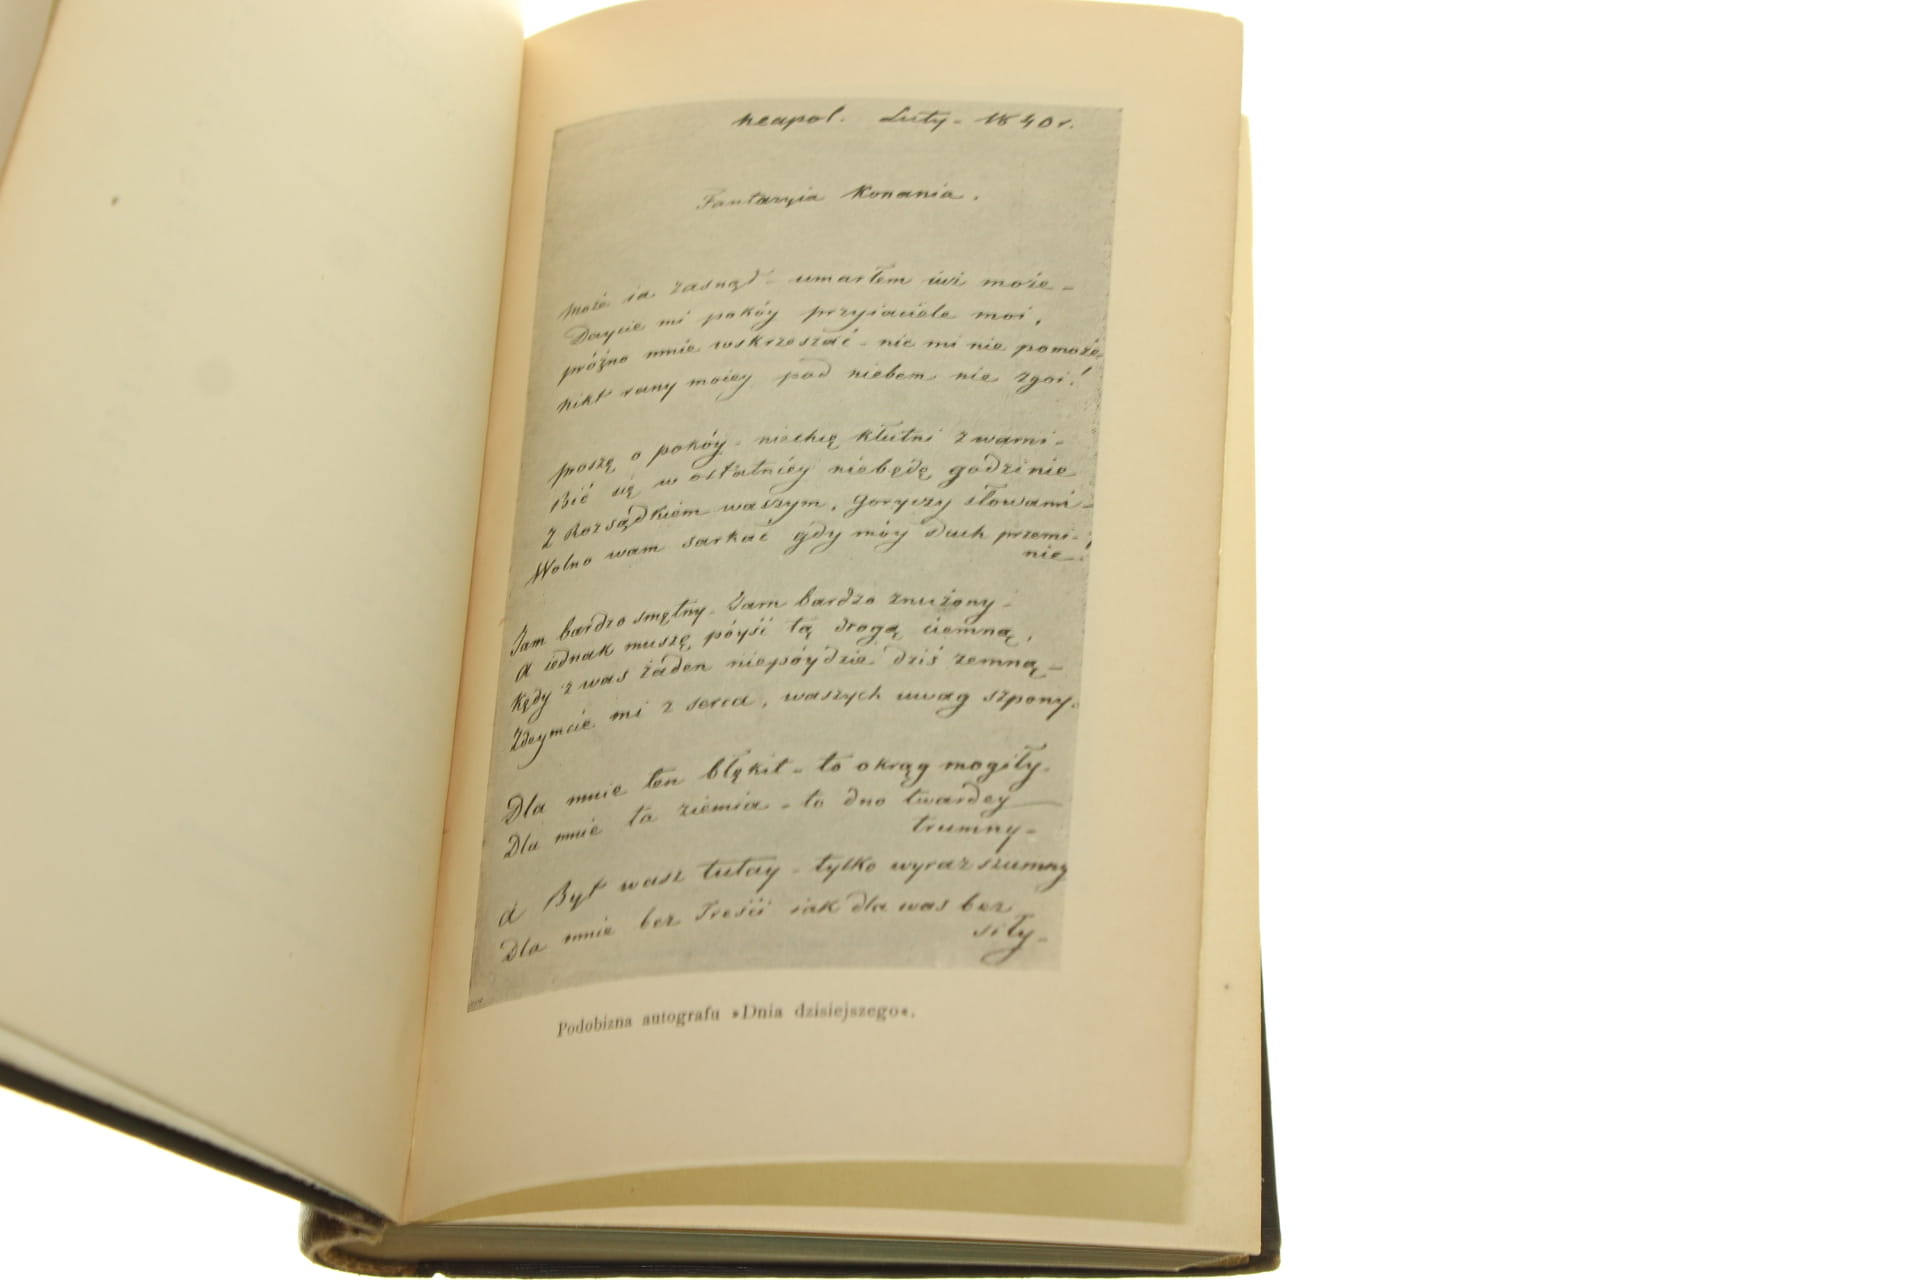 Neapol. Luty - 1840 r.
Fantazyia Konania.
Może ia zasnął - umarłem iuż może -
Daycie mi pokóy przyiaciele moi,
próżno mnie wskrzeszać - nic mi nie pomoże,
Nikt rany moiey pod niebem nie zgoi!
proszę o pokóy - niechcę kłutni z wami -
Bić się w ostatniey niebędę godzinie
Z Rozsądkiem waszym, Goryczy słowami -
Wolno wam sarkać gdy móy duch przemi-
nie!
Jam bardzo smętny - Jam bardzo znużony -
A iednak muszę póyść tą drogą ciemną,
Kędy z was żaden niepóydzie dziś zemną -
Zdeymcie mi z serca, waszych uwag szpony.
Dla mnie ten błękit - to okrąg mogiły -
Dla mnie ta ziemia - to dno twardey
trumny -
A Byt wasz tutay - tylko wyraz szumny
Dla mnie bez Treści iak dla was bez
siły -
Podobizna autografu »Dnia dzisiejszego«.